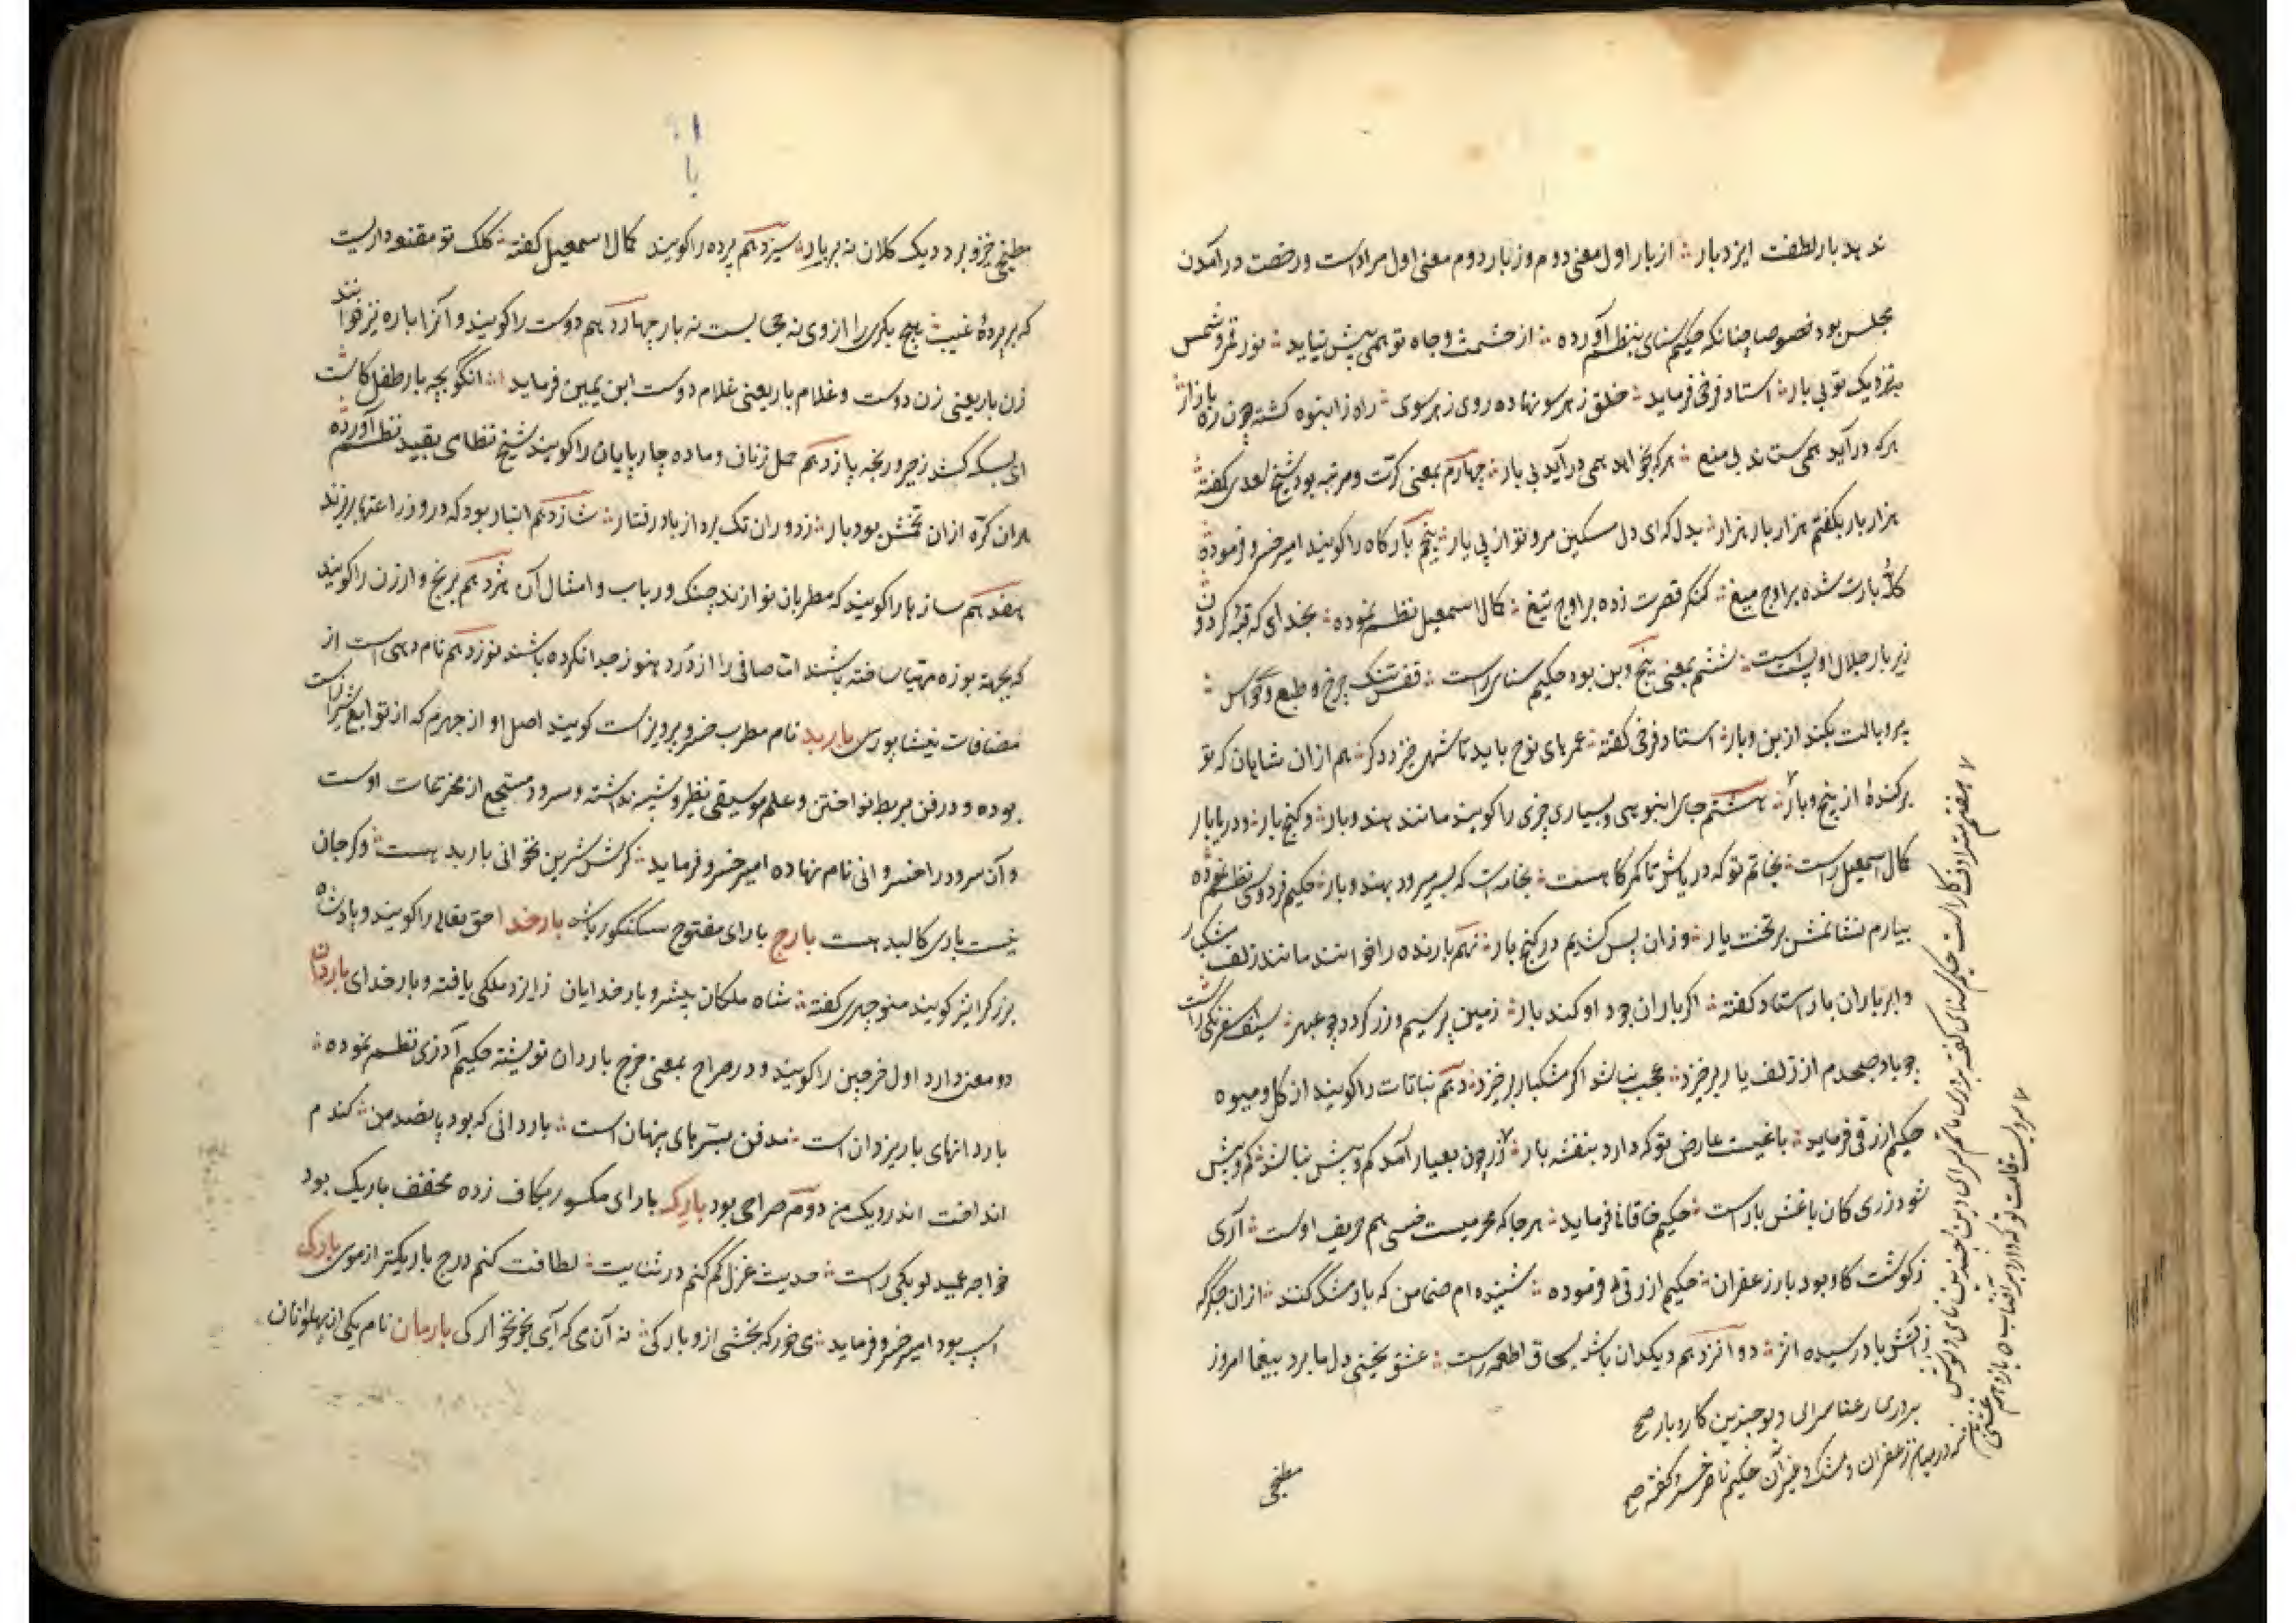 ندهد بار لطفت ایزد بار ؞ از بار اول معنی دوم و ز بار دوم معنی اول مراد است و رخصت در آمدن
مجلس بود خصوصا چنانکه حکیم سنای بنظم آورده ؞ از حشمت و جاه تو همی پیش نیاید ؞ نور قمر و شمس
بنزدیک تو بی بار ؞ استاد فرخی فرماید ؞ خلق ز هر سو نهاده روی ز هر سوی ؞ راه ز انبوه کشته چون ره بازار
هر که در آید همی ستاند بی منع ؞ هر که بخواهد همی در آید بی بار ؞ چهارم بمعنی کرت و مرتبه بود شیخ سعدی گفته
هزار بار بگفتم هزار بار هزار ؞ بدل که ای دل مسکین مرو تو از پی یار ؞ پنجم بارکاه را کویند امیر خسرو فرموده
کلهٔ بارت شده بر اوج میغ ؞ کنکر قصرت زده بر اوج تیغ ؞ کمال اسمعیل نظم نموده ؞ بخدای که قبهٔ کردون
زیر بار جلال او پست است ؞ ششم بمعنی بیخ و بن بود حکیم سنای راست ؞ قفس تنک چرخ و طبع و حواس ؞
پر و بالت بکند از بن و بار ؞ استاد فرخی کفته ؞ عمرهای نوح باید تا شهی خیزد دکر ؞ هم از ان شاهان که تو
بر کندهٔ از بیخ و بار ؞ هشتم جای انبوهی و بسیاری چیزی را کویند مانند هند و بار ؞ و کنج بار ؞ و دریابار
کمال اسمعیل راست ؞ بخاتم تو که دریاش تا کمر کاهست ؞ بخامه ات که بسر میرود بهند و بار ؞ حکیم فردوسی نظم نموده
بیارم نشانمش بر تخت بار ؞ و زان پس کشیم در کنج بار ؞ نهم بارنده را خوانند مانند زلف مشکبار
و ابر باران بار استاد کفته ؞ اکر باران جود او کند بار ؞ زمین پر سیم و زر کردد چو عبهر ؞ سیف سفرنکی راست
چو باد صبحدم از زلف یار برخیزد ؞ عجب نباشد اکر مشکبار برخیزد ؞ دهم نباتات را کویند از کل و میوه
حکیم ازرقی فرماید ؞ باغیست عارض تو که دارد بنفشه بار ؞ زر چون بعیار آمد کم و بیش نباشد ؞ کم و بیش
شود زری کان با غش بار است ؞ حکیم خاقانی فرماید ؞ هر جا که محرمیست خسی هم حریف اوست ؞ آری
ز کوشت کاو بود بار زعفران ؞ حکیم ازرقی فرموده ؞ شنیده ام صنما من که باد مشک کند ؞ از ان جکر که
ز آتش بادر سیده اثر ؞ دوانزدهم دیکدان باشد بسحاق اطعمه راست ؞ عشق یخنی دل ما برد بیغما امروز
مطبخی
مطبخی خیز و برد دیک کلان نه بر بار ؞ سیزدهم پرده را کویند کمال اسمعیل کفته ؞ کلک تو مقنعه داریست
که بر پردهٔ غیب ؞ هیچ بکری را از وی نه حجابست نه بار چهاردهم دوست را کویند و آنرا باره نیز خوانند
زن بار یعنی زن دوست و غلام بار یعنی غلام دوست ابن یمین فرماید ؞ انکو بچه بار طفل کاست
ای بسکه کشد زجر و رنجه پانزدهم حمل زنان و ماده چارپایان را کویند شیخ نظامی بقید نظم آورده
هران کرّه از ان تخمش بود بار ؞ ز دوران تک برد از باد رفتار ؞ شانزدهم انبار بود که درو زراعتها بریزند
هفدهم سازها را کویند که مطربان نوازند چنک و رباب و امثال آن هژدهم برنج و ارزن را کویند
که بجهة بوزه مهیا ساخته باشند اما صافی را از درد هنوز جدا نکرده باشند نوزدهم نام دهی است از
مضافات نیشاپوری باربد نام مطرب خسرو پرویز است کویند اصل او از جهرم که از توابع شیراز است
بوده و در فن بربط نواختن و علم موسیقی نظیر و شبیه نداشته و سرود مسجع از مخترعات اوست
و آن سرود را خسروانی نام نهاده امیر خسرو فرماید ؞ کرش شیرین نخوانی باربد هست ؞ و کر جان
نیست باری کالبد هست بارج با رای مفتوح سکنکور باشد بارخدا حق تعالی را کویند و پادشاه
بزرک را نیز کویند منوچهری کفته ؞ شاه ملکان پیشرو بار خدایان ز ایزد ملکی یافته و بار خدای باردان
دو معنی دارد اول خرجین را کویند و در صراح بمعنی خرج باردان نوشته حکیم آذری نظم نموده ؞
باردانهای بار یزدان است ؞ مدفن سترهای پنهان است ؞ باردانی که بود پانصد من ؞ کندم
انداخت اندرو یک من دوم صراحی بود بارک با رای مکسور بکاف زده مخفف باریک بود
خواجه عمید لوبکی راست ؞ حدیث غزل کم کنم در ثنایت ؞ لطافت کنم درج باریکتر از موی بارکی
اسپ بود امیر خسرو فرماید ؞ می خور که بخشی از و بارکی ؞ نه آن می که آبی بخونخوارکی بارمان نام یکی از پهلوانان